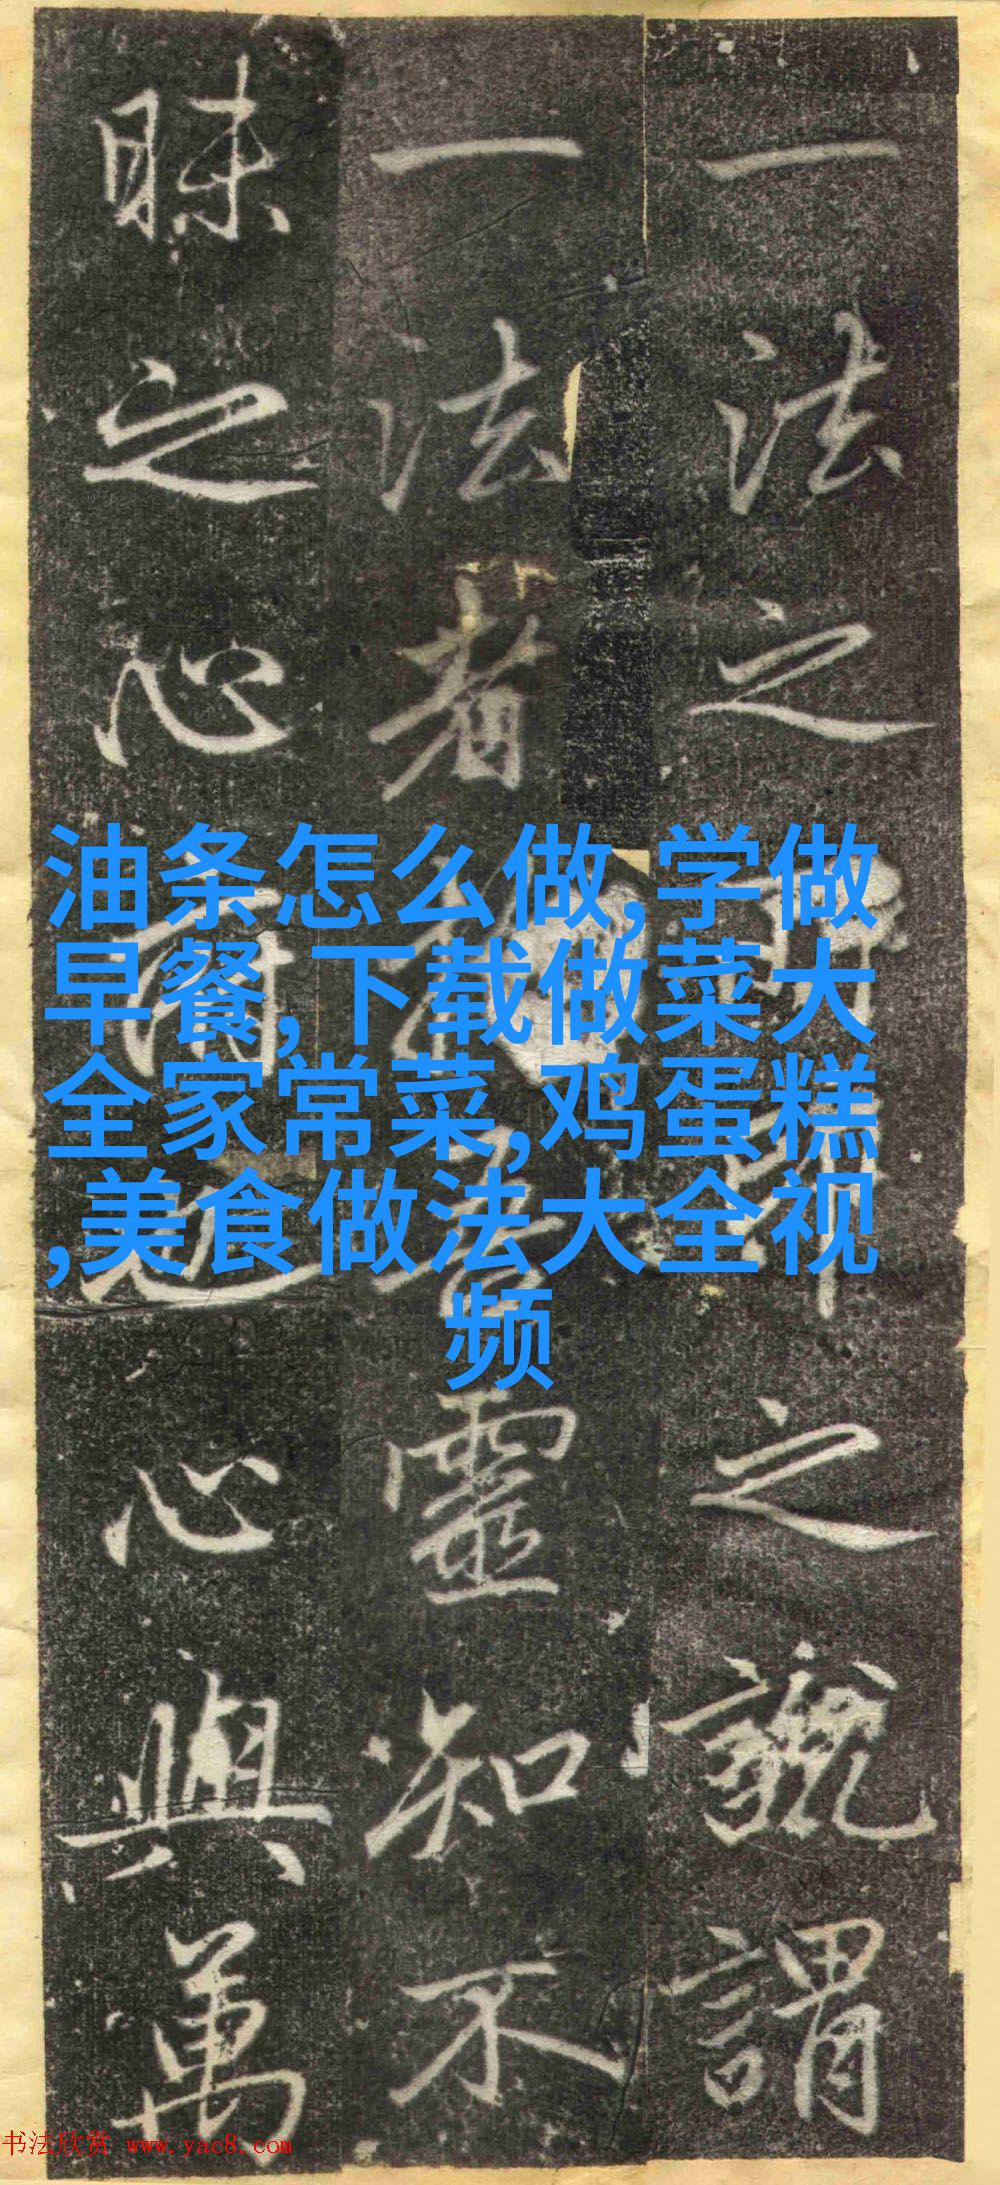 一法之之謂
一法者靈知不
昧之心心與萬
油条怎么做,学做
早餐,下载做菜大
全家常菜,鸡蛋糕
,美食做法大全视
频
书法欣赏 www.yac8.com